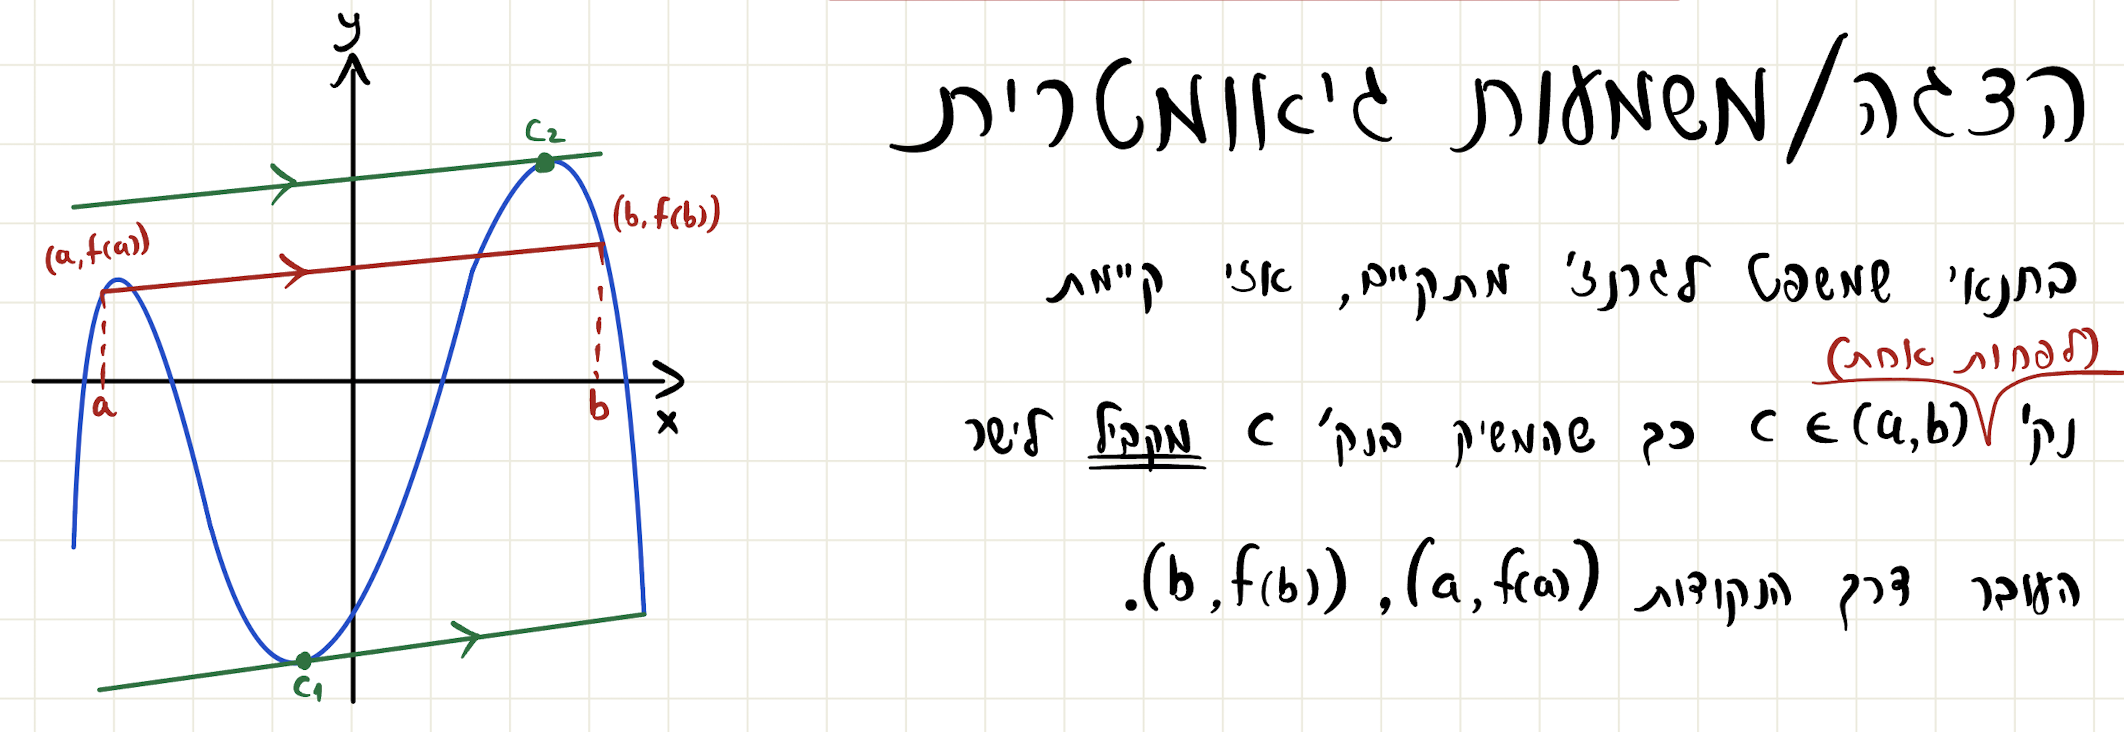 הצגה/משמעות גיאומטרית
בתנאי שמשפט לגרנז' מתקיים, אזי קיימת
(לפחות אחת)
נק' c ∈ (a,b) כך שהמשיק בנק' c מקביל לישר
העובר דרך הנקודות (a, f(a)) , (b, f(b)).
y
c₂
(b, f(b))
(a, f(a))
a
b
x
c₁